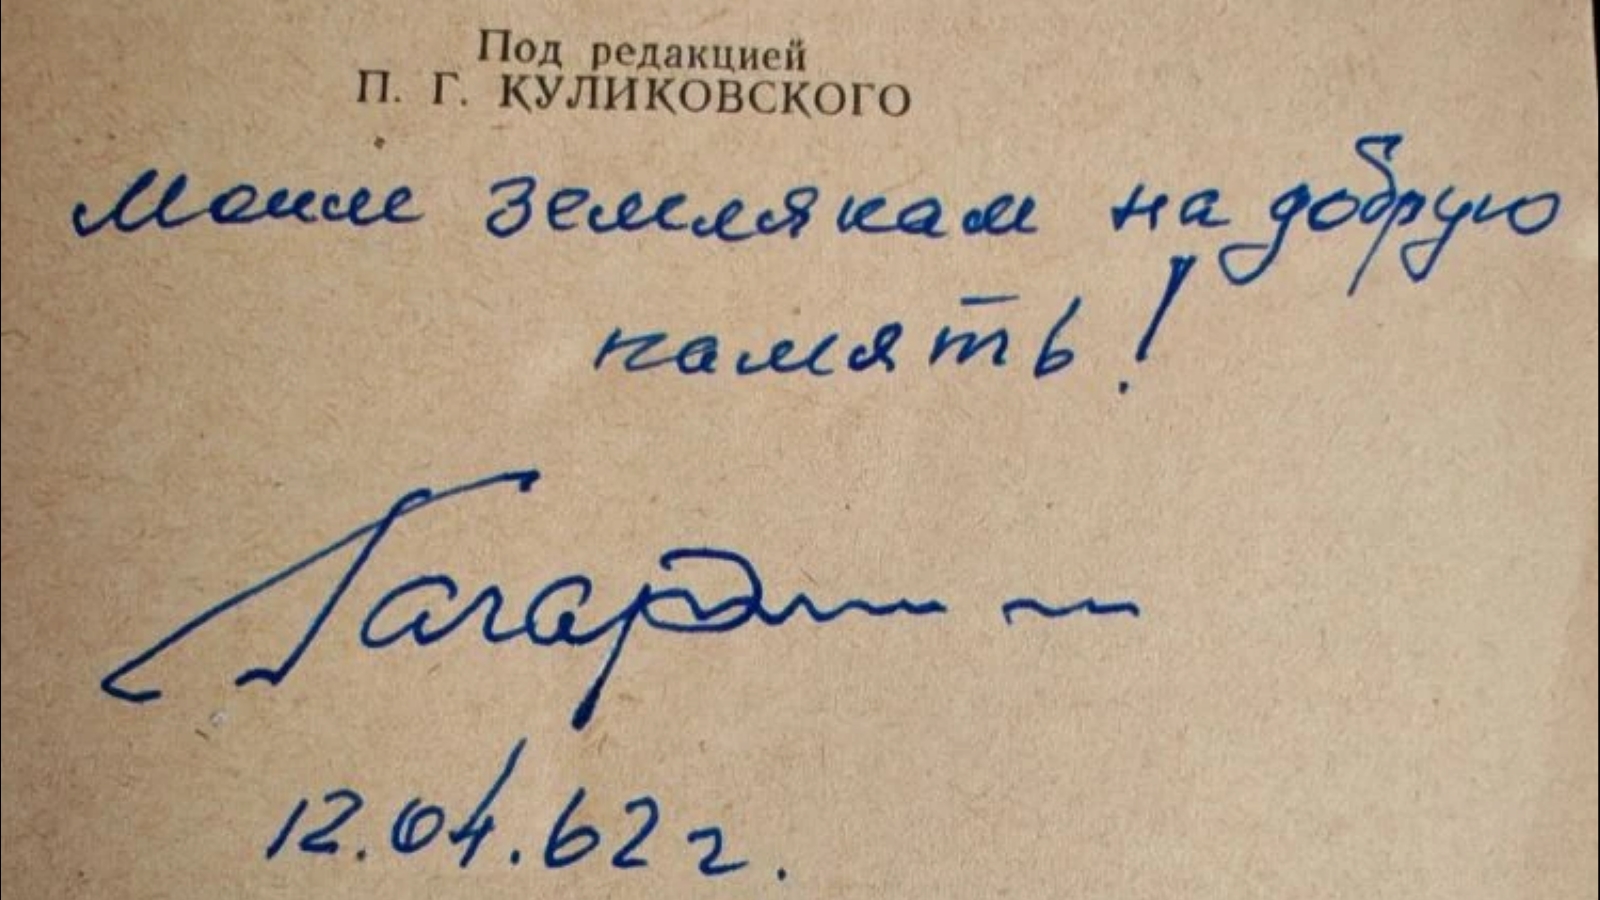 Под редакцией
П. Г. КУЛИКОВСКОГО
Моим землякам на добрую
память!
Гагарин
12.04.62 г.